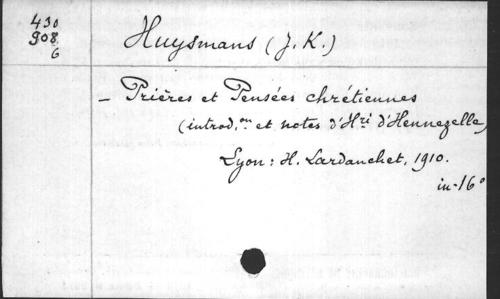 430
908.
6
Huysmans (J. K.)
– Prières et Pensées chrétiennes
(introd.on et notes d'Hri d'Hennezelle)
Lyon : H. Lardanchet, 1910.
in-16°